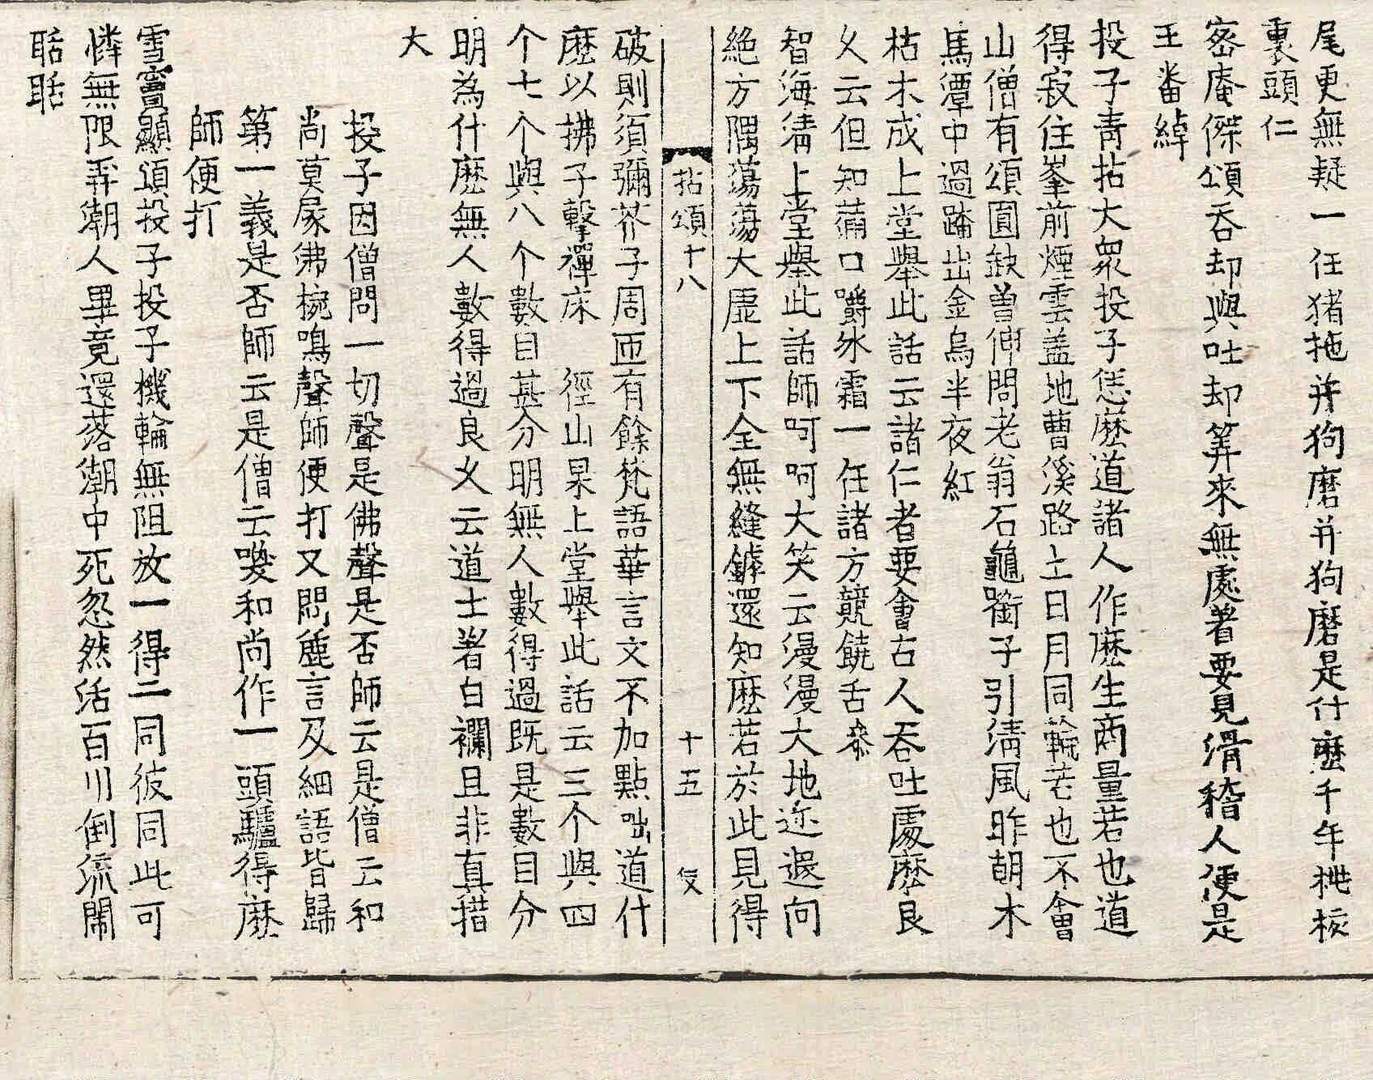 尾更無疑一任猪拖并狗磨并狗磨是什麽千年桃核
裏頭仁
宻庵傑頌吞却與吐却筭來無處著要見滑稽人便是
王番綽
投子青拈大衆投子恁麽道諸人作麽生商量若也道
得寂住峯前煙雲盖地曹溪路上日月同輪若也不會
山僧有頌圓缺曽伸問老翁石龜銜子引淸風昨朝木
馬潭中過踏出金烏半夜紅
枯木成上堂舉此話云諸仁者要會古人吞吐處麽良
乆云但知蘸口嚼氷霜一任諸方競饒舌叅
智海淸上堂舉此話師呵呵大笑云漫漫大地迩遐向
絶方隅蕩蕩大虛上下全無縫鏬還知麽若於此見得
拈頌十八 十五
破則須彌芥子周匝有餘梵語華言文不加點咄道什
麽以拂子擊禪床 徑山杲上堂舉此話云三个與四
个七个與八个數目甚分明無人數得過既是數目分
明為什麽無人數得過良乆云道士著白襴且非真措
大
投子因僧問一切聲是佛聲是否師云是僧云和
尚莫𡱰沸椀鳴聲師便打又問麁言及細語皆歸
第一義是否師云是僧云喚和尚作一頭驢得麽
師便打
雪竇顯頌投子投子機輪無阻放一得二同彼同此可
憐無限弄潮人畢竟還落潮中死忽然活百川倒流鬧
聒聒